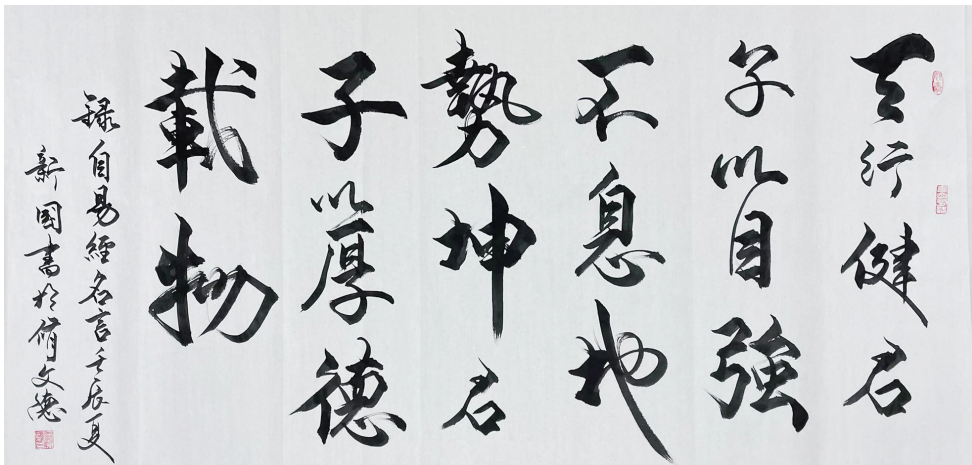 天行健君
子以自強
不息地
勢坤君
子以厚德
載物
錄自易經名言壬辰夏
新國書於脩文德